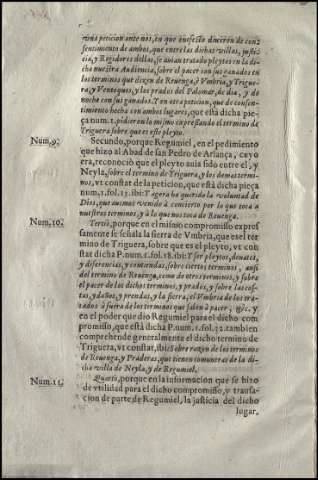 una peticion ante nos, en que en efecto dixeron de con-
sentimento de ambos, que entre las dichas villas, justi-
cia, y Regidores dellas, se auian tratado pleytos en la di-
cha nuestra Audiencia, sobre el pacer con sus ganados en
los terminos que dizen de Reuenga, ô Vmbria, y Trigue-
ra, y Venteques, y los prados del Palomar, de dia, y de
noche con sus ganados. Y en otra peticion, que de consen-
timento hecha con ambos lugares, que està dicha pie-
ça num. 1. pidieron lo mismo expressando el termino de
Triguera sobre que es este pleyto.
Num. 9. Secundo, porque Regumiel, en el pedimiento
que hizo al Abad de san Pedro de Arlança, cuyo
era, reconociò que el pleyto auia sido entre el, y
Neyla, sobre el termino de Triguera, y los demas termi-
nos, vt constat de la peticion, que està dicha pieça
num. 1. fol. 13. ibi: Y agora ha querido la voluntad de
Dios, que auemos venido â concierto por lo que toca a
nuestros terminos, y â lo que nos toca de Reuenga.
Num. 10. Tertiò, porque en el mismo compromisso expres-
samente se señala la sierra de Vmbria, que es el ter-
mino de Triguera, sobre que es el pleyto, vt con-
stat dicha P. num. 1. fol. 18. ibi: Y ser pleytos, debates,
y diferencias, y contiendas, sobre ciertos terminos, ansi
del termino de Reuenga, como de otros terminos, y sobre
el pacer de los dichos terminos, y prados, y sobre las cos-
tas, y daños, y prendas, y la sierra, el Vmbria de los tra-
tados à fuera de los terminos que salen à pacer, &c. y
en el poder que dio Regumiel para el dicho com-
promisso, que està dicha P. num. 1. fol. 32. tambien
comprehende generalmente el dicho termino de
Triguera, vt constat, ibi: Sobre razon de los terminos
de Reuenga, y Praderas, que tienen comuneras de la di-
cha villa de Neyla, y de Regumiel.
Num. 11. Quartò, porque en la informacion que se hizo
de vtilidad para el dicho compromisso, y transa-
cion de parte de Regumiel, la justicia del dicho
lugar,